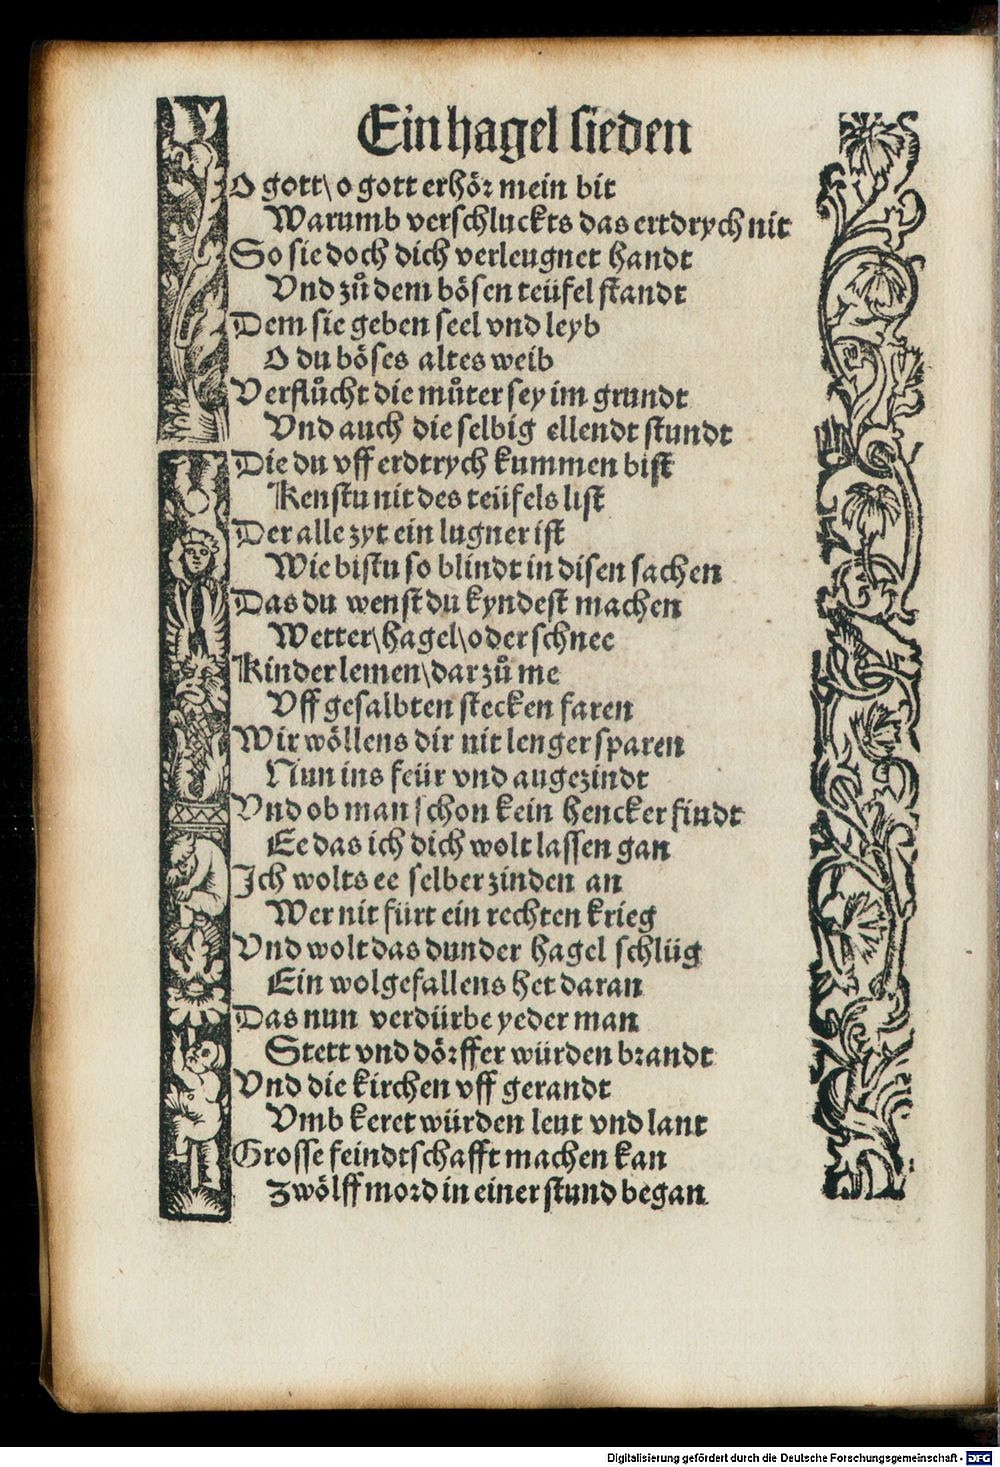 Ein hagel sieden
O gott\ o gott erhör mein bit
Warumb verschluckts das ertdrych nit
So sie doch dich verleugnet handt
Vnd zů dem bösen teüfel standt
Dem sie geben seel vnd leyb
O du böses altes weib
Verflůcht die můter sey im grundt
Vnd auch die selbig ellendt stundt
Die du vff erdtrych kummen bist
Kenstu nit des teüfels list
Der alle zyt ein lugner ist
Wie bistu so blindt in disen sachen
Das du wenst du kyndest machen
Wetter\ hagel\ oder schnee
Kinder lemen\ dar zů me
Vff gesalbten stecken faren
Wir wöllens dir nit lenger sparen
Nun ins feür vnd augezindt
Vnd ob man schon kein hencker findt
Ee das ich dich wolt lassen gan
Ich wolts ee selber zinden an
Wer nit fürt ein rechten krieg
Vnd wolt das dunder hagel schlüg
Ein wolgefallens het daran
Das nun verdürbe yeder man
Stett vnd dörffer würden brandt
Vnd die kirchen vff gerandt
Vmb keret würden leut vnd lant
Grosse feindtschafft machen kan
Zwölff mord in einer stund began
Digitalisierung gefördert durch die Deutsche Forschungsgemeinschaft - DFG